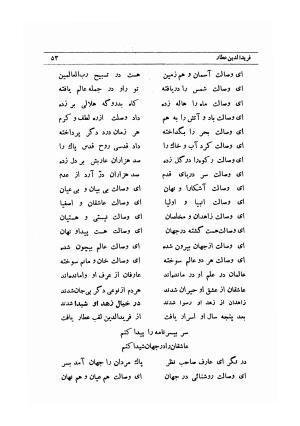 فریدالدین عطار ۵۳
ای وصالت آسمان و هم زمین هست در تسبیح رب‌العالمین
ای وصالت شمس را دریافته نور او در جمله عالم یافته
ای وصالت ماه را هاله زده گاه بدر و گه هلالی بر زده
ای وصالت باد و آتش را به هم داد وصلت از ره لطف و کرم
ای وصالت بحر را بگداخته هر زمان درد دگر پرداخته
ای وصالت کرد آب و خاک را داد قدسی روح قدس پاک را
ای وصالت رکوه را در گل زده صد هزاران عادبش بر دل زده
ای وصالت سر دریای قدم صد هزاران در آرد از عدم
ای وصالت آشکارا و نهان ای وصالت بی بیان و بی عیان
ای وصالت انبیا و اولیا ای وصالت عاشقان و اصفیا
ای وصالت زاهدان و مخلصان ای وصالت نیستی و هستیان
ای وصالت هست گشته در جهان ای وصالت هست پیدا و نهان
ای وصالت از جهان بیرون شده ای وصالت عالم بیچون شده
ای وصالت هر دو عالم سوخته ای وصالت خان و مانم سوخته
عالمان در علم او در مانده‌اند عارفان از عرف او وامانده‌اند
عاشقان از عشق او حیران شدند هردم از نوعی دگر بی‌جان شدند
زاهدان از زهد او رسوا شدند در خیال زهد او شیدا شدند
بعد پنجه سال او اسرار یافت از فریدالدین لقب عطار یافت
سر بیسرنامه را پیدا کنم
عاشقان را در جهان شیدا کنم
در نگر ای عارف صاحب نظر پاک مردان را جهان آمد بسر
ای وصالت روشنائی در جهان ای وصالت هم عیان و هم نهان